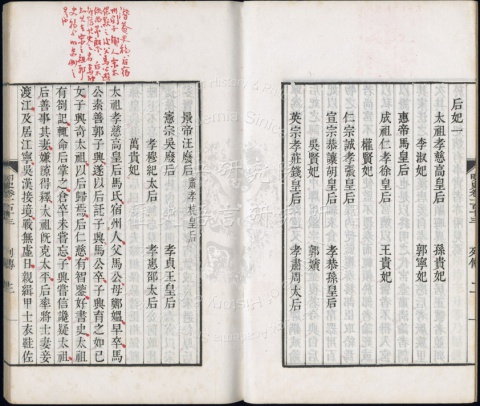 后妃一
太祖孝慈高皇后　孫貴妃
李淑妃　郭寧妃
惠帝馬皇后
成祖仁孝徐皇后　王貴妃
權賢妃
仁宗誠孝張皇后
宣宗恭讓胡皇后　孝恭孫皇后
吳賢妃　郭嬪
英宗孝莊錢皇后　孝肅周太后
景帝汪廢后　肅孝杭皇后
憲宗吳廢后　孝貞王皇后
孝穆紀太后　孝惠邵太后
萬貴妃
太祖孝慈高皇后馬氏宿州人父馬公母鄭媼早卒馬
公素善郭子興遂以后託子興馬公卒子興育之如己
女子興奇太祖以后歸焉后仁慈有智鑒好書史太祖
有劄記輒命后掌之倉卒未嘗忘子興嘗信讒疑太祖
后善事其妻嫌隙得釋太祖既克太平后率將士妻妾
渡江及居江寧吳漢接境戰無虛日親緝甲士衣鞋佐